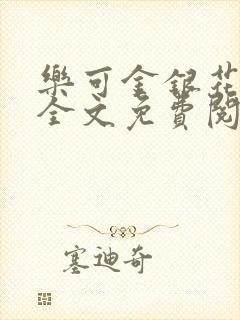 樂可金銀花
全文免費閱
塞迪奇